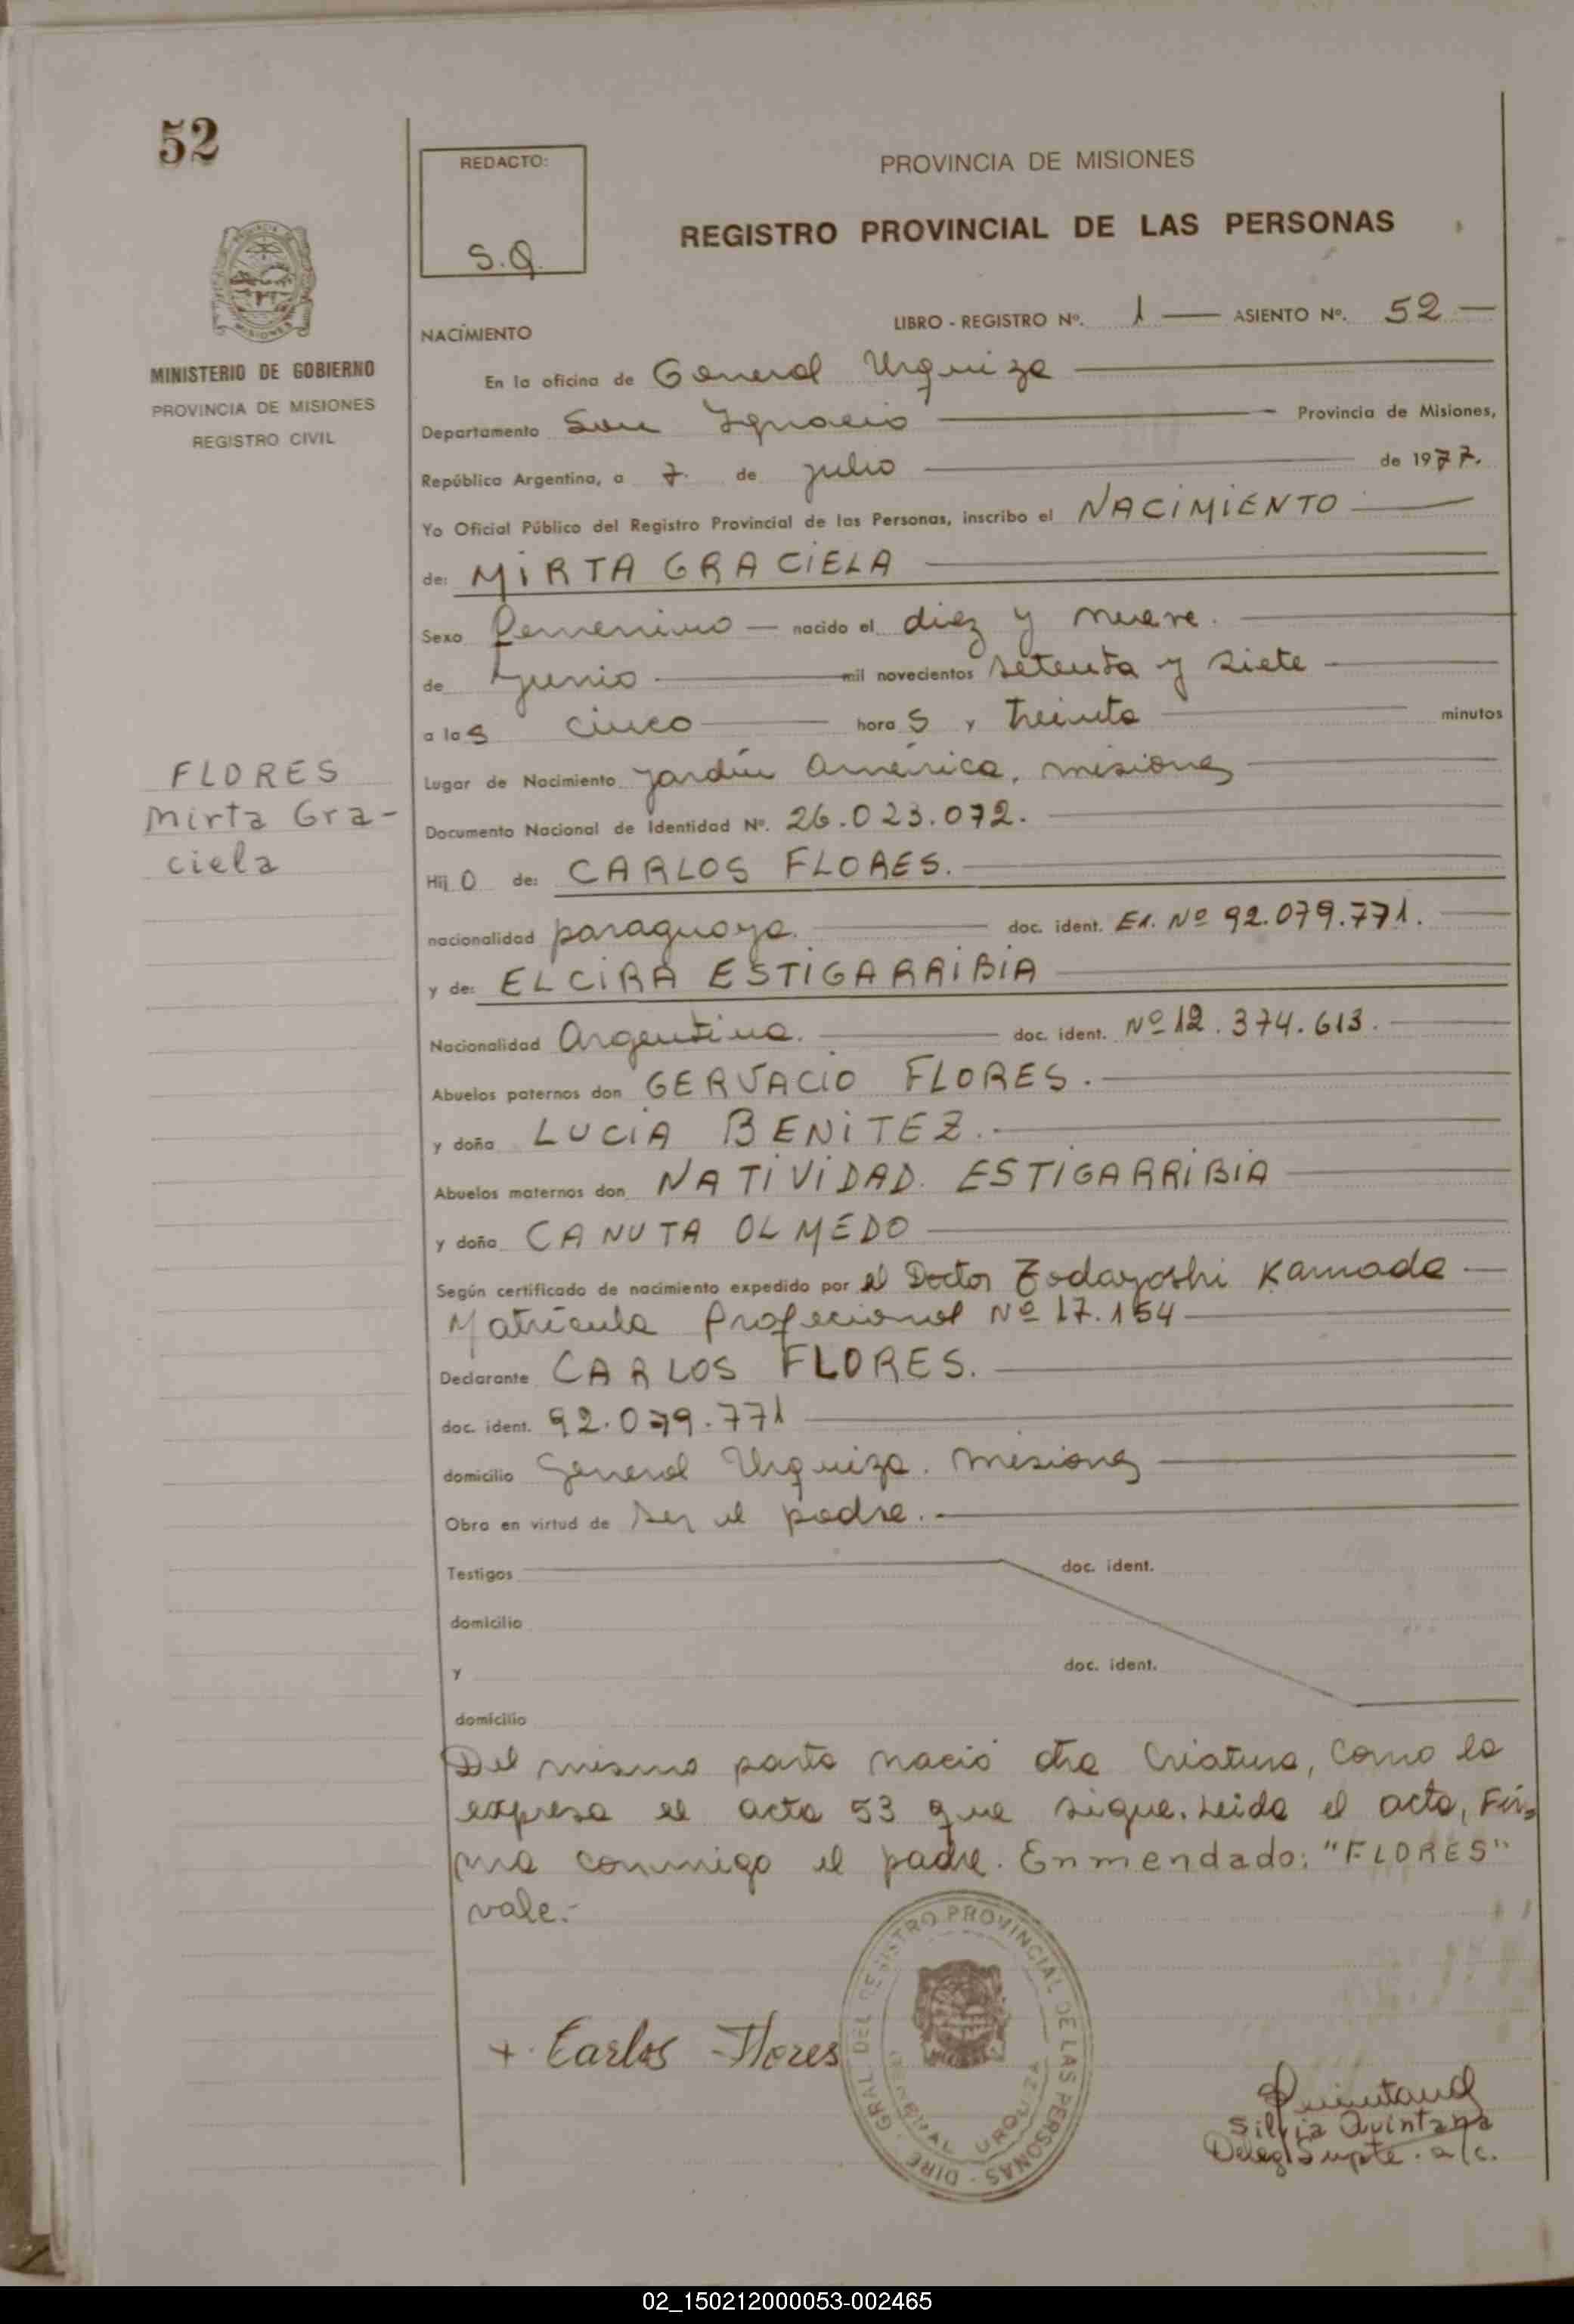 52
REDACTO:
S.Q.
PROVINCIA DE MISIONES
REGISTRO PROVINCIAL DE LAS PERSONAS
MINISTERIO DE GOBIERNO
PROVINCIA DE MISIONES
REGISTRO CIVIL
NACIMIENTO
LIBRO - REGISTRO Nº. 1 — ASIENTO Nº. 52 —
En la oficina de General Urquiza
Departamento San Ignacio — Provincia de Misiones,
República Argentina, a 7. de julio — de 1977.
Yo Oficial Público del Registro Provincial de las Personas, inscribo el NACIMIENTO
de: MIRTA GRACIELA
Sexo Femenino — nacido el diez y nueve.
de junio — mil novecientos setenta y siete
a las cinco — horas y treinta — minutos
Lugar de Nacimiento Jardín América, misiones
Documento Nacional de Identidad Nº. 26.023.072.
FLORES
Mirta Gra-
ciela
Hijo de: CARLOS FLORES.
nacionalidad paraguaya. — doc. ident. E1. Nº 92.079.771.
y de: ELCIRA ESTIGARRIBIA
Nacionalidad Argentina. — doc. ident. Nº 12.374.613.
Abuelos paternos don GERVACIO FLORES.
y doña LUCIA BENITEZ.
Abuelos maternos don NATIVIDAD. ESTIGARRIBIA
y doña CANUTA OLMEDO
Según certificado de nacimiento expedido por el Doctor Zodayoshi Kamada
Matrícula Profecional Nº 17.154
Declarante CARLOS FLORES.
doc. ident. 92.079.771
domicilio General Urquiza. misiones
Obra en virtud de ser el padre.
Testigos doc. ident.
domicilio
y doc. ident.
domicilio
Del mismo parto nació otra criatura, como lo
expresa el acta 53 que sigue. Leida el acta, Fir-
ma conmigo el padre. Enmendado: "FLORES"
vale.-
+ Carlos Flores
DIRE. GRAL. DEL REGISTRO PROVINCIAL DE LAS PERSONAS
GENERAL URQUIZA
Quintana
Silvia Quintana
Deleg. Supte. a/c.
02_150212000053-002465